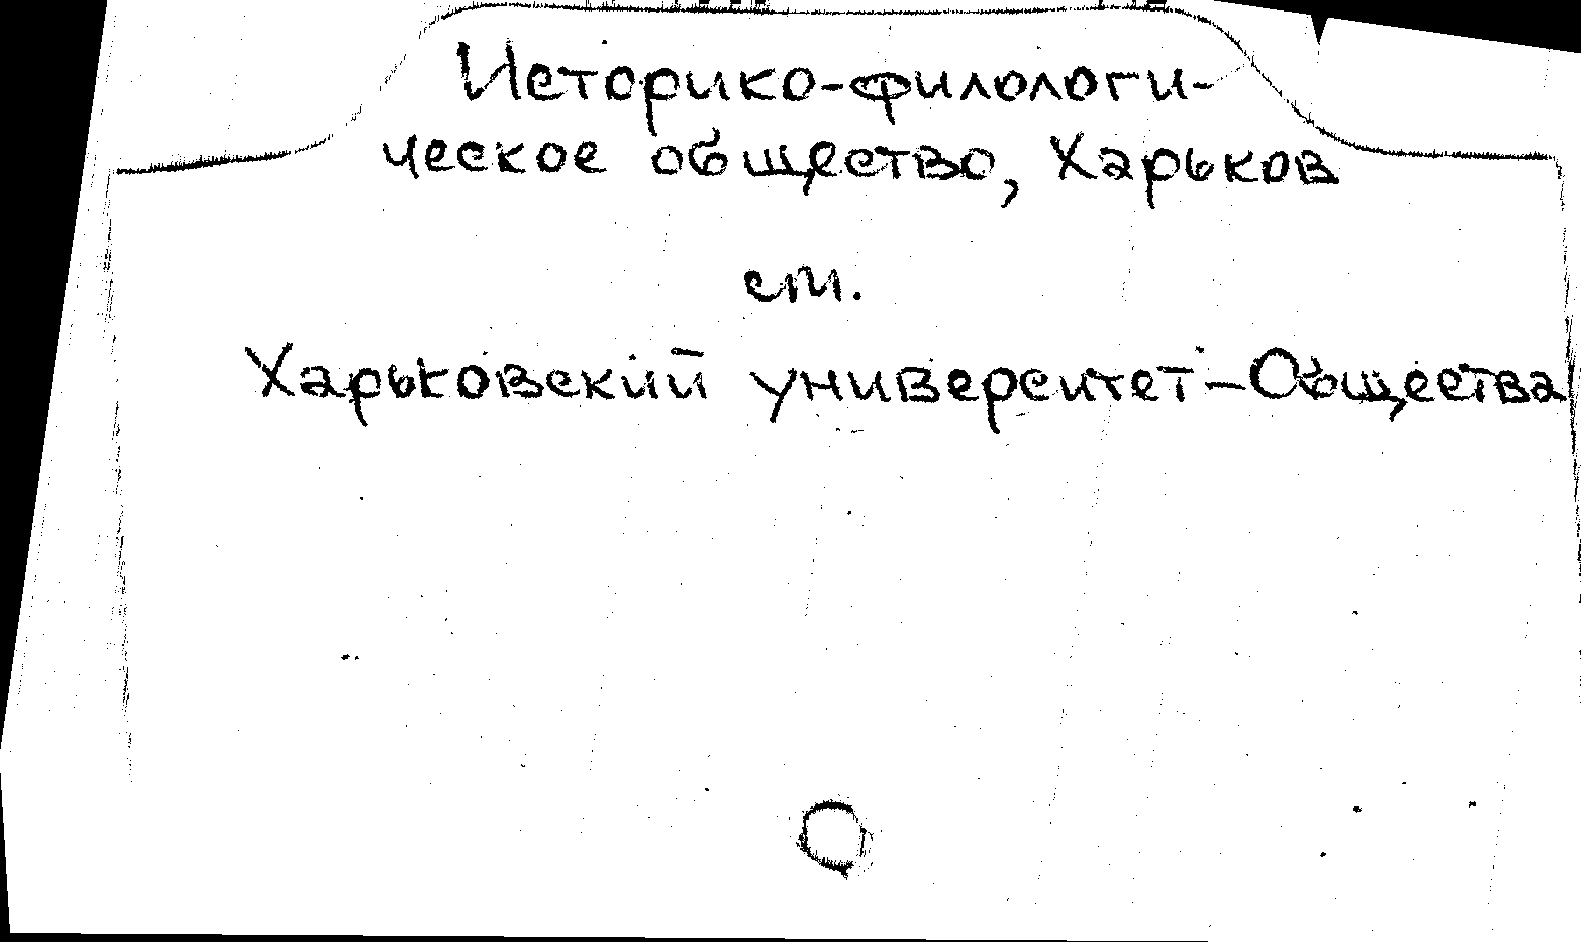 Историко-филологи-
ческое общество, Харьков
см.
Харьковский университет-Общества